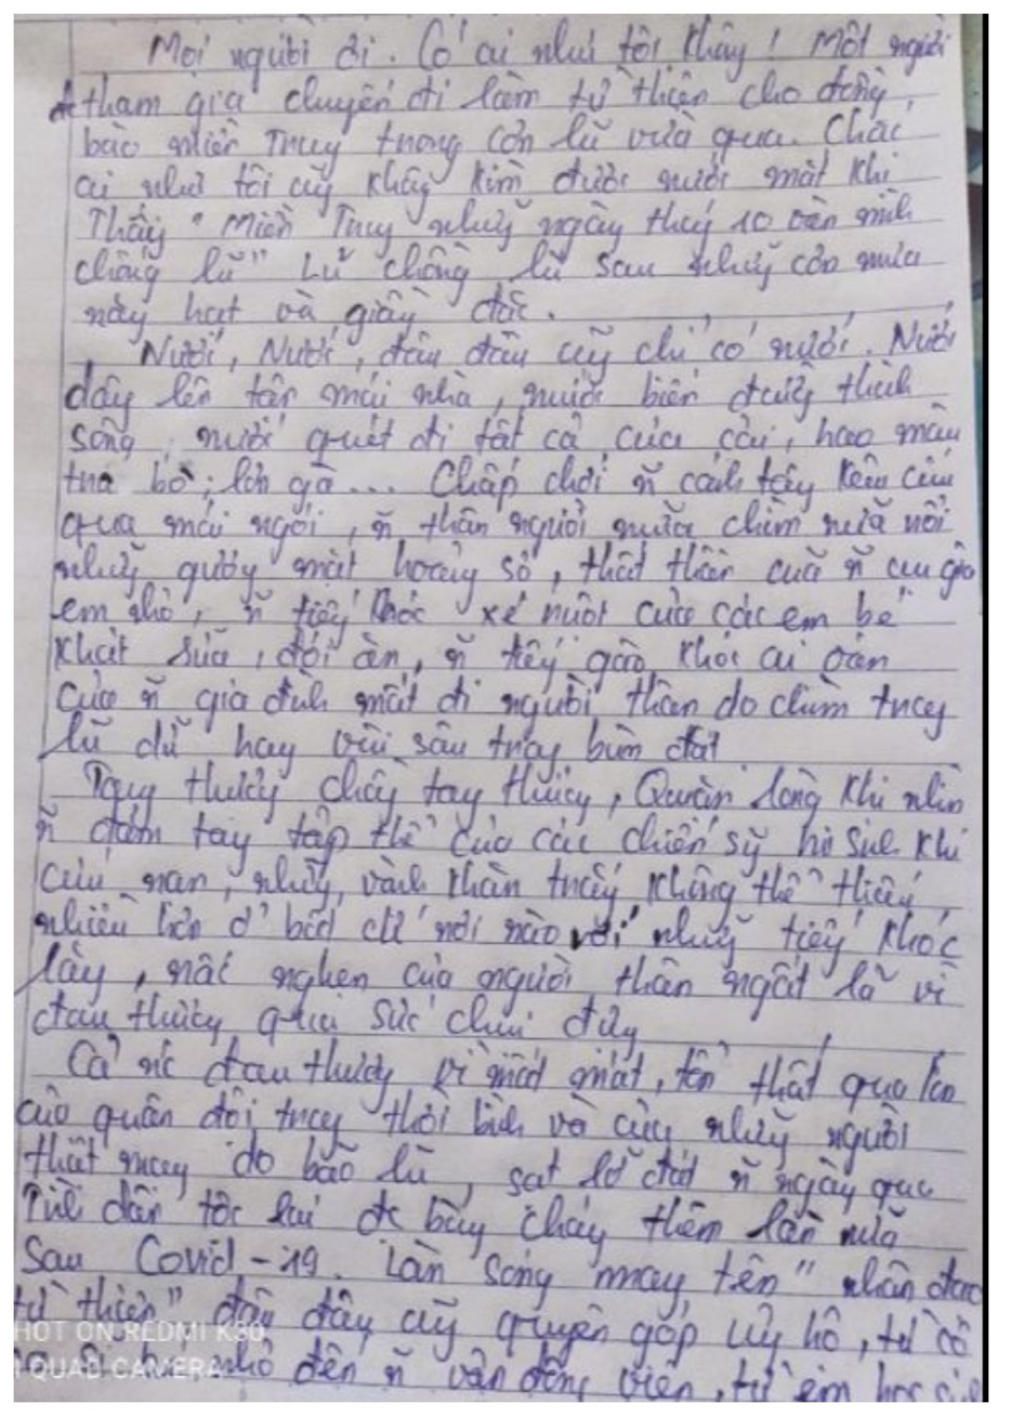 Mọi người ơi. Có ai như tôi không! Một người
tham gia chuyến đi làm từ thiện cho đồng
bào miền Trung trong cơn lũ vừa qua. Chắc
ai như tôi cũng không kìm được nước mắt khi
Thấy "Miền Trung những ngày tháng 10 oằn mình
chống lũ" Lũ chồng lũ sau những cơn mưa
nặng hạt và giầy đặc.
Nước, Nước, đâu đâu cũng chỉ có nước. Nước
dâng lên tận mái nhà, nước biến đường thành
sông, nước quét đi tất cả của cải, hoa màu
bò, lợn gà... Chấp chới ñ cánh tay kêu cứu
qua mái ngói, ñ thân người nửa chìm nửa nổi
những gương mặt hoảng sợ, thất thần của ñ cụ già
em nhỏ, ñ tiếng khóc xé ruột của các em bé
khát sữa, đói ăn, ñ tiếng gào khóc ai oán
của ñ gia đình mất đi người thân do chìm trong
lũ dữ hay vùi sâu trong bùn đất
Tang thương chồng tang thương, Quặn lòng khi nhìn
ñ đám tang tập thể của các chiến sỹ hi sinh khi
cứu nạn, những vành khăn trắng không thể thiếu
nhiều hơn ở bất cứ nơi nào với những tiếng khóc
lặng, nấc nghẹn của người thân ngất lã vì
đau thương quá sức chịu đựng
Cả nc đau thương vì mất mát, tổn thất quá lớn
của quân đội trong thời bình và cùng những người
thiệt mạng do bão lũ, sạt lở đất ñ ngày qua
Tình dân tộc lại đc bùng cháy thêm lần nữa
Sau Covid-19. Làn sóng mang tên "nhân đạo
từ thiện" đâu đâu cũng quyên góp ủng hộ, từ cô
nhỏ đến ñ vận động viên, từ em học
SHOT ON REDMI K30
AI QUAD CAMERA